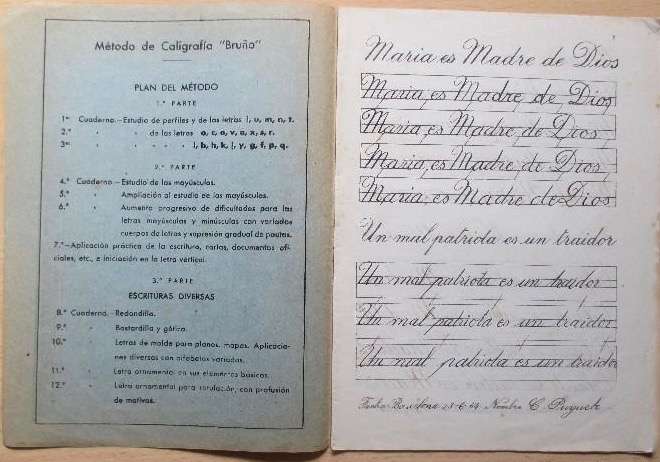 Método de Caligrafía "Bruño"
PLAN DEL MÉTODO
1.ª PARTE
1er Cuaderno.—Estudio de perfiles y de las letras i, u, m, n, t.
2.º " " de las letras o, c, a, v, e, x, s, r.
3er " " " " l, b, h, k, j, y, g, f, p, q.
2.ª PARTE
4.º Cuaderno.—Estudio de las mayúsculas.
5.º " Ampliación al estudio de las mayúsculas.
6.º " Aumento progresivo de dificultades para las
letras mayúsculas y minúsculas con variados
cuerpos de letra y supresión gradual de pautas.
7.º—Aplicación práctica de la escritura, cartas, documentos ofi-
ciales, etc., e iniciación en la letra vertical.
3.ª PARTE
ESCRITURAS DIVERSAS
8.º Cuaderno.—Redondilla.
9.º " Bastardilla y gótica.
10.º " Letras de molde para planos, mapas. Aplicacio-
nes diversas con alfabetos variados.
11.º " Letra ornamental en sus elementos básicos.
12.º " Letra ornamental para rotulación, con profusión
de motivos.
María es Madre de Dios
María es Madre de Dios
María es Madre de Dios
María es Madre de Dios
María es Madre de Dios
Un mal patriota es un traidor
Un mal patriota es un traidor
Un mal patriota es un traidor
Un mal patriota es un traidor
Fecha Barcelona Nombre C.